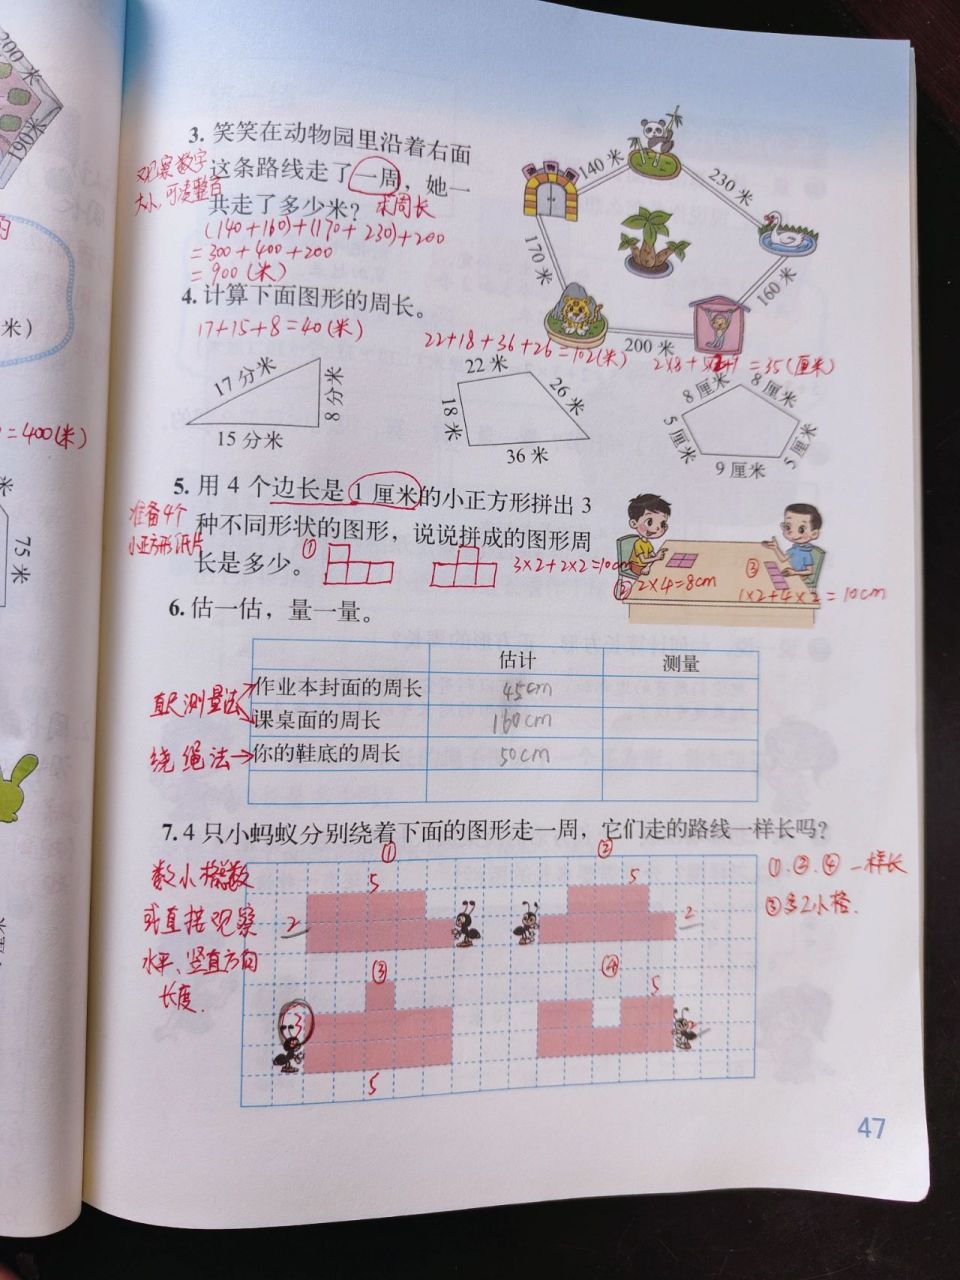 200米
190米
的
米)
=400(米)
米
75米
3. 笑笑在动物园里沿着右面
这条路线走了一周，她一
共走了多少米？求周长
观察数字
大小，可凑整百
(140+160)+(170+230)+200
=300+400+200
=900(米)
140米
230米
170米
160米
200米
4. 计算下面图形的周长。
17+15+8=40(米)
22+18+36+26=102(米)
=35(厘米)
17分米
8分米
15分米
22米
26米
18米
36米
8厘米
8厘米
5厘米
5厘米
9厘米
5. 用 4 个边长是 1 厘米的小正方形拼出 3
种不同形状的图形，说说拼成的图形周
长是多少。
准备4个
小正方形纸片
①
3×2+2×2=10cm
②2×4=8cm
③
1×2+4×2=10cm
6. 估一估，量一量。
估计 测量
作业本封面的周长 45cm
课桌面的周长 160cm
你的鞋底的周长 50cm
直尺测量法
绕绳法
7. 4 只小蚂蚁分别绕着下面的图形走一周，它们走的路线一样长吗？
数小格
或直接观察
水平、竖直方向
长度.
①
5
2
②
5
2
③
3
5
④
5
①、②、④ 一样长
③多2小格.
47